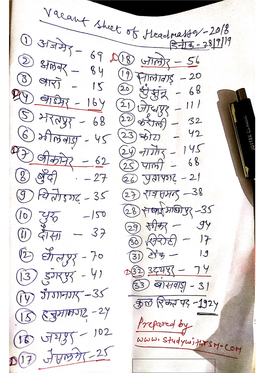 Vacant sheet of Headmaster - 2018
दिनांक - 23/9/19
① अजमेर - 69
2 अलवर - 84
③ बारां - 15
④ बाड़मेर - 164
⑤ भरतपुर - 68
⑥ भीलवाड़ा - 45
⑦ बीकानेर - 62
⑧ बूंदी - 27
⑨ चित्तोड़गढ़ - 35
⑩ चुरू - 150
⑪ दौसा - 37
⑫ धौलपुर - 70
⑬ डूंगरपुर - 41
⑭ गंगानगर - 35
⑮ हनुमानगढ़ - 24
⑯ जयपुर - 102
⑰ जैसलमेर - 25
⑱ जालोर - 56
⑲ झालावाड़ - 20
20 झुंझुनूं - 68
㉑ जोधपुर - 111
22 करौली - 32
㉓ कोटा - 42
㉔ नागौर - 145
㉕ पाली - 68
26 प्रतापगढ़ - 21
㉗ राजसमन्द - 38
㉘ सवाईमाधोपुर - 35
㉙ सीकर - 94
㉚ सिरोही - 17
㉛ टोंक - 19
㉜ उदयपुर - 74
33 बांसवाड़ा - 31
कुल रिक्त पद - 1924
Prepared by
www.studywithrsm.com